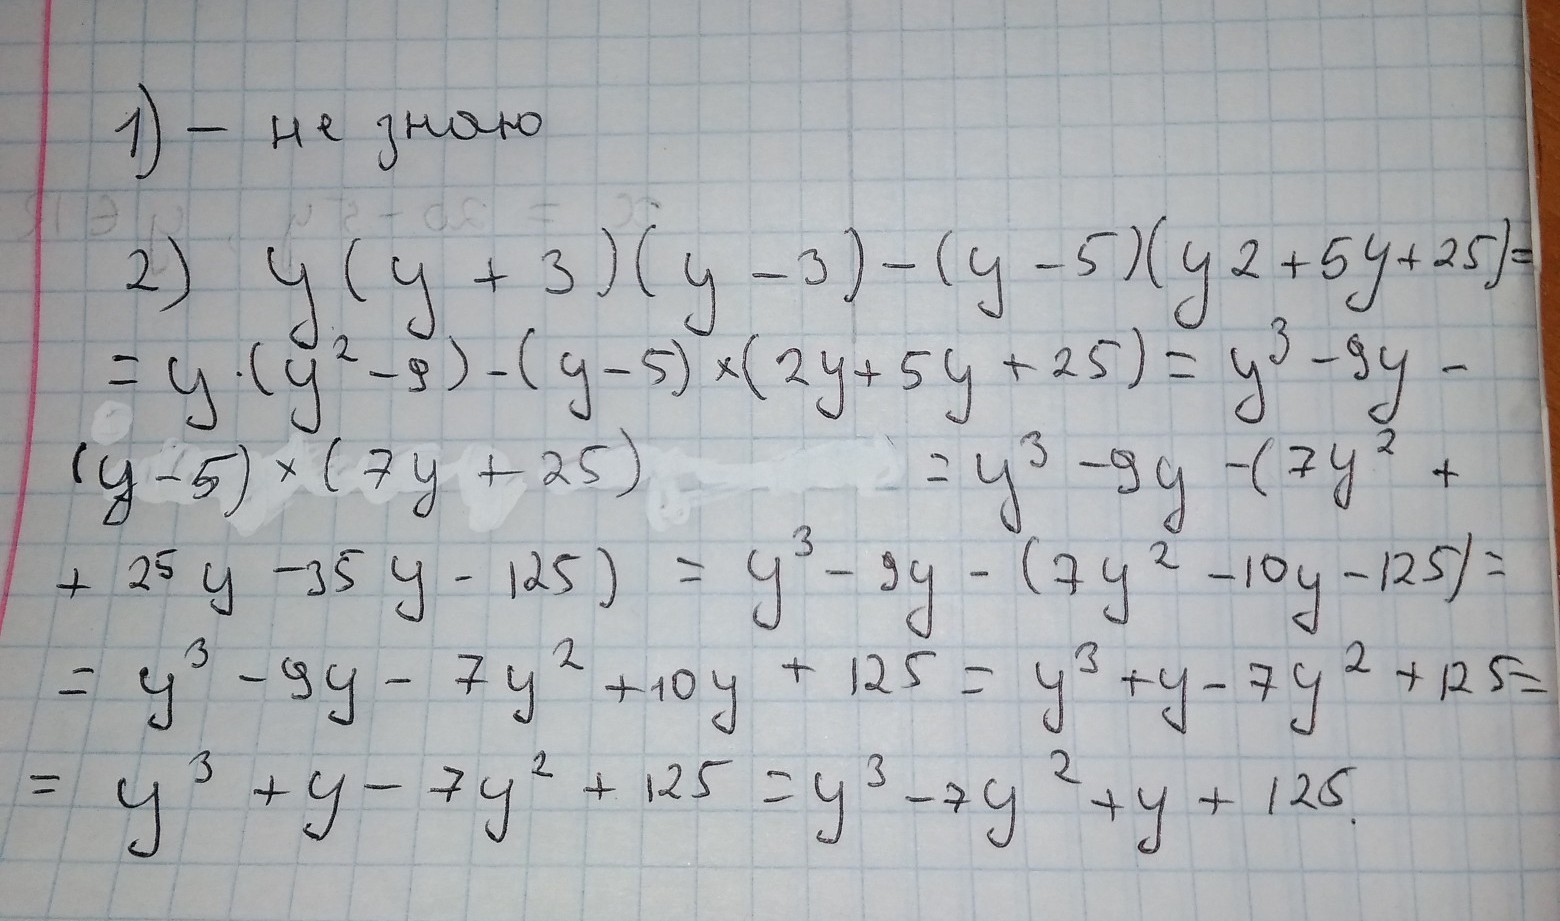 1) – не знаю
2) y(y + 3)(y – 3) – (y – 5)(y2 + 5y + 25) =
= y · (y² – 9) – (y – 5) × (2y + 5y + 25) = y³ – 9y –
(y – 5) × (7y + 25) = y³ – 9y – (7y² +
+ 25y – 35y – 125) = y³ – 9y – (7y² – 10y – 125) =
= y³ – 9y – 7y² + 10y + 125 = y³ + y – 7y² + 125 =
= y³ + y – 7y² + 125 = y³ – 7y² + y + 125.